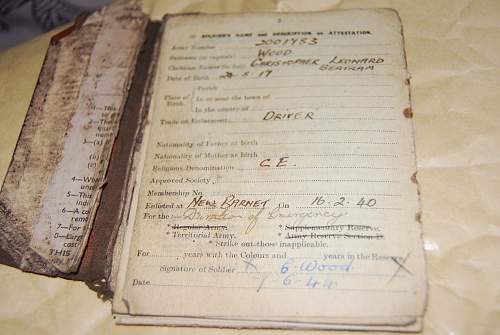 3
(I) SOLDIER'S NAME AND DESCRIPTION ON ATTESTATION.
Army Number 2001983
Surname (in capitals) WOOD
Christian Names (in full) CHRISTOPHER LEONARD
BERTRAM
Date of Birth 20.8.17
Place of Birth.
Parish
In or near the town of
In the county of
Trade on Enlistment DRIVER
Nationality of Father at birth
Nationality of Mother at birth
Religious Denomination C.E.
Approved Society
Membership No.
Enlisted at NEW BARNET On 16.2.40
For the :— Duration of Emergency
* Regular Army. * Supplementary Reserve.
* Territorial Army. * Army Reserve Section D.
* Strike out those inapplicable.
For years with the Colours and years in the Reserve
Signature of Soldier X Wood X
Date
1—
2—
3—(a)
(b)
(c)
4—
5—
6—
7—For
8—
THIS